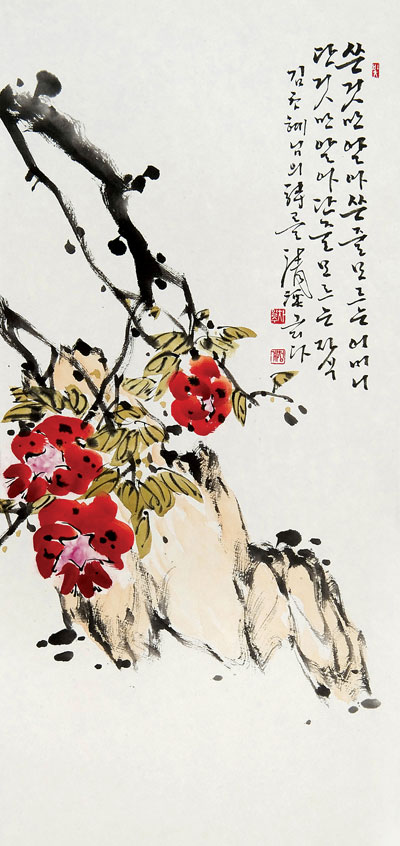 쓴 것만 알아 쓴 줄 모르는 어머니
단 것만 알아 단 줄 모르는 자식
김초혜님의 詩를